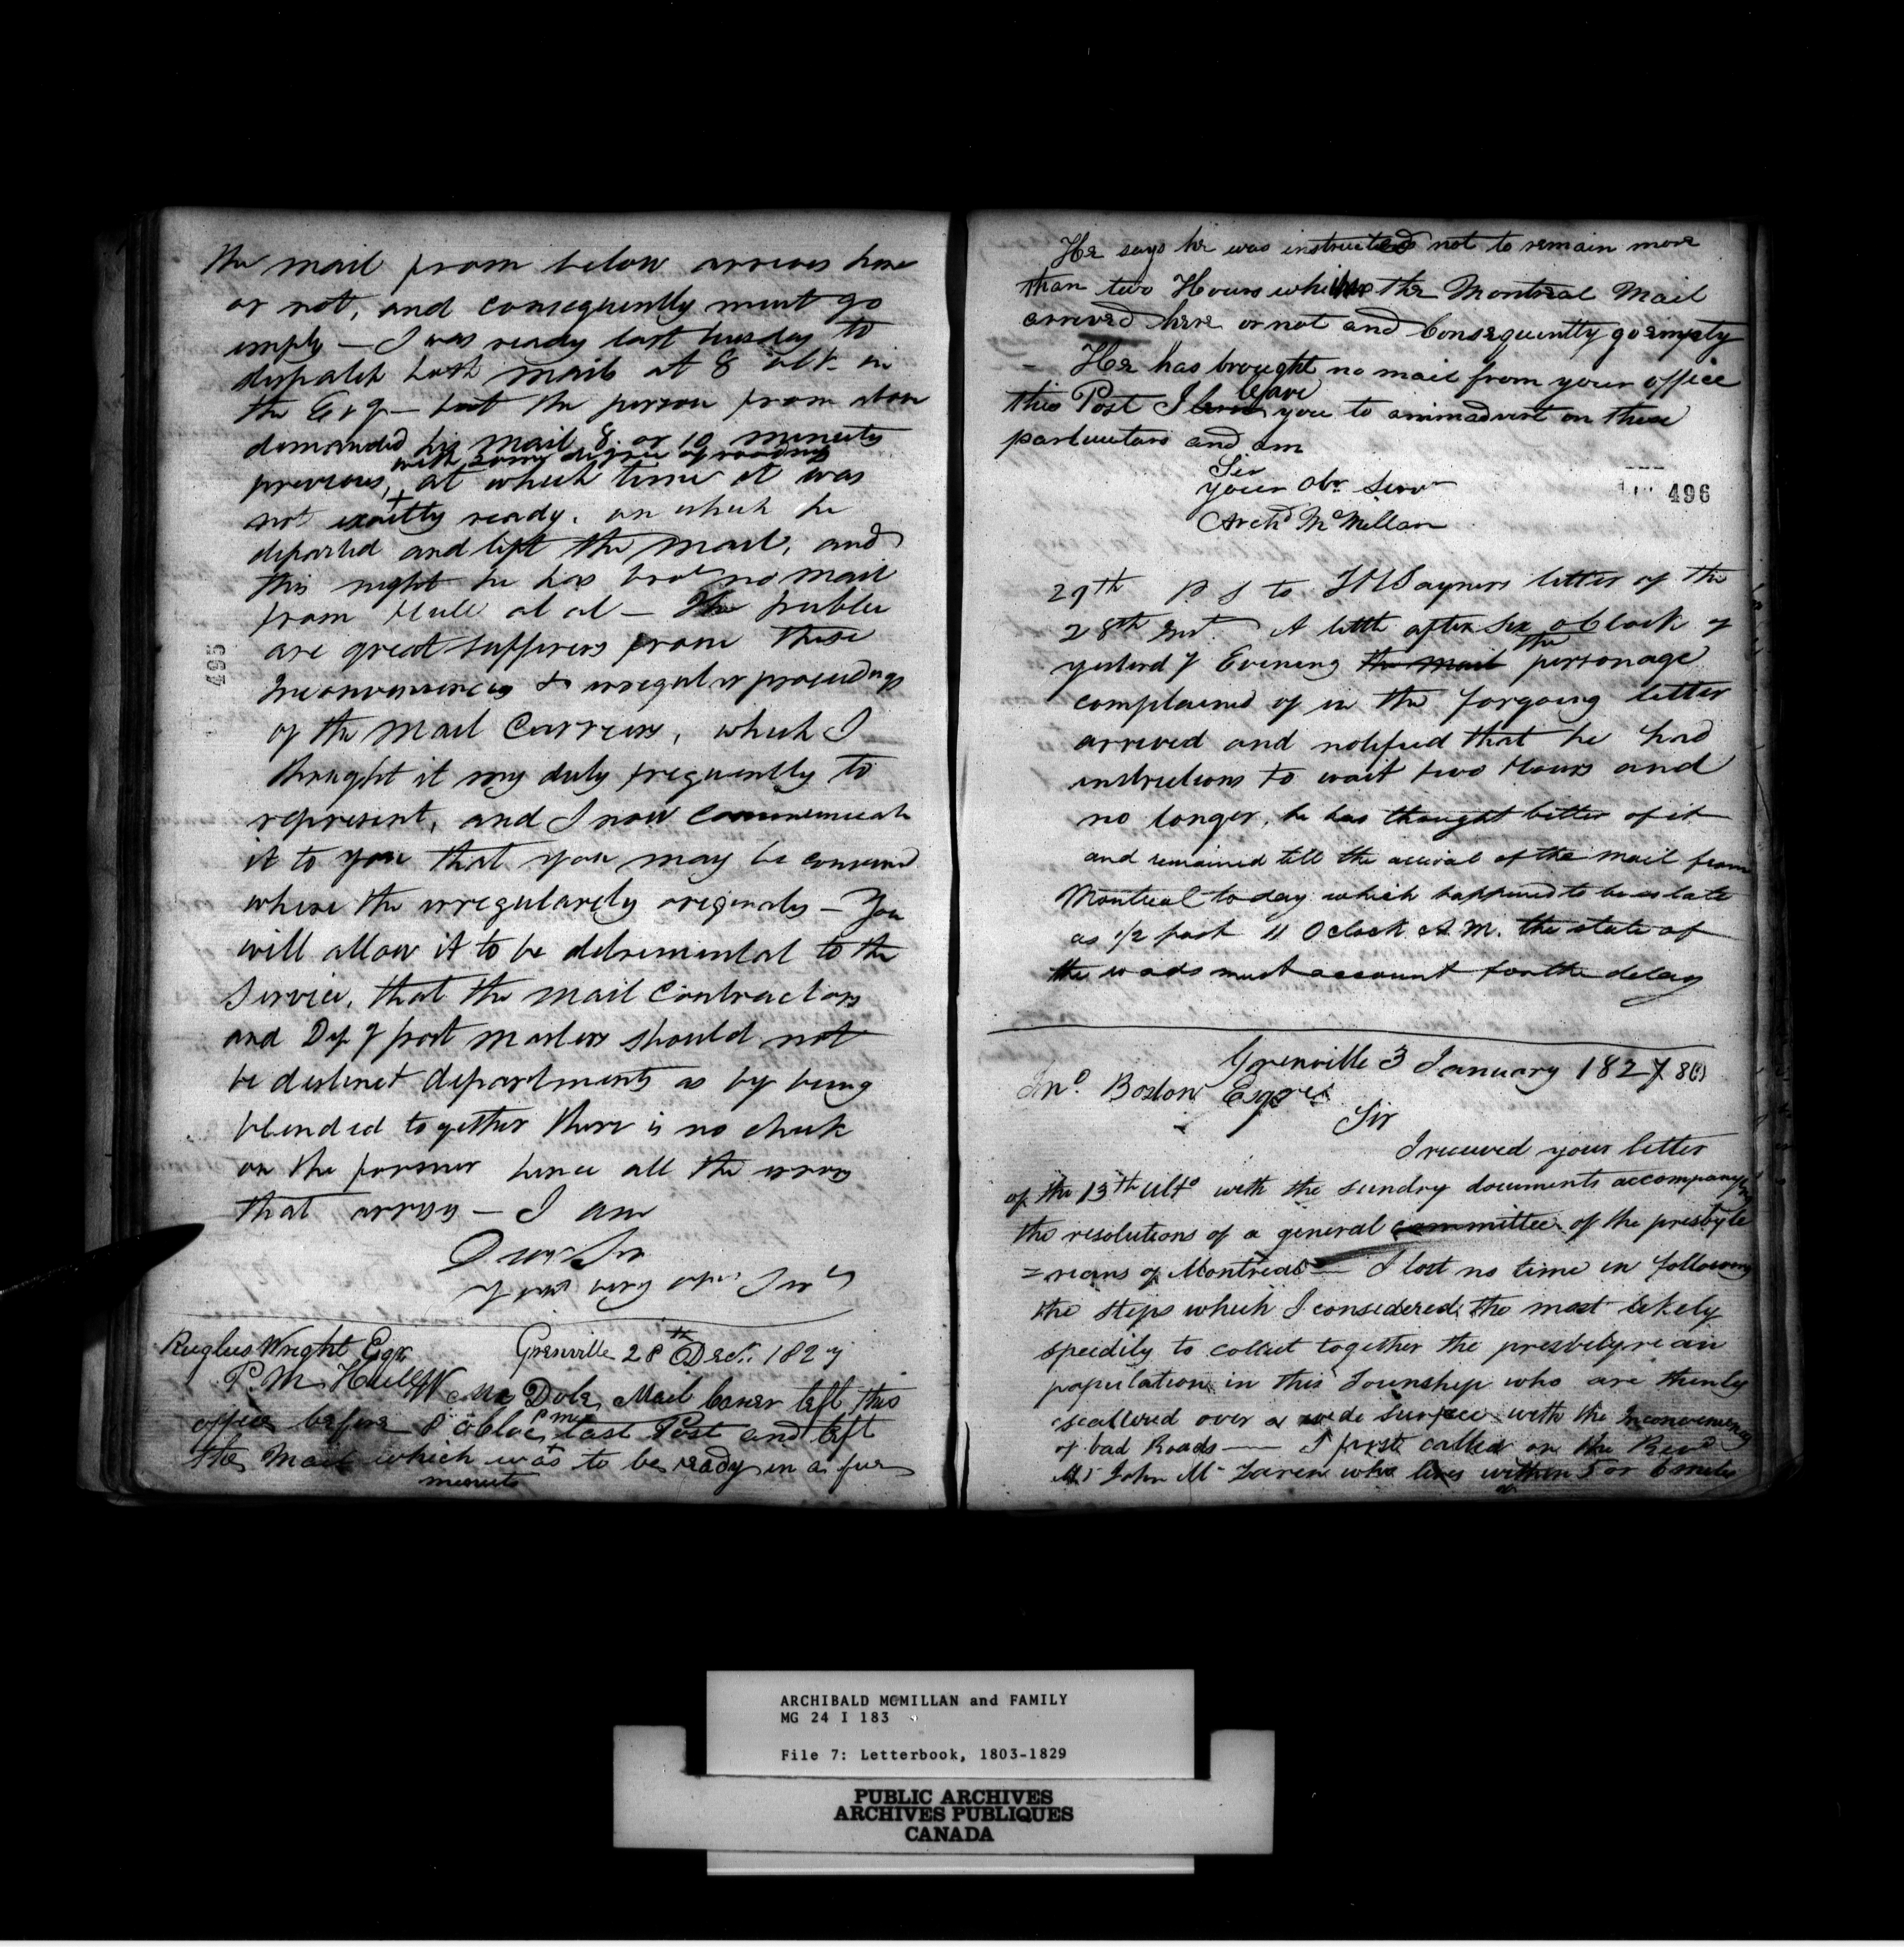 the mail from below arrives here
or not, and consequently must go
empty — I was ready last tuesday to
dispatch both mails at 8 oClk in
the Evg — but the person from above
demanded his mail 8 or 10 minutes
with some degree of
previous, at which time it was
not exactly ready. on which he
departed and left the Mail, and
this night he has brot no mail
from Hull at al — The public
are great sufferers from these
Inconveniencies & irregular proceedings
of the Mail Carriers, which I
thought it my duty frequently to
represent, and I now communicate
it to you that you may be
where the irregularity originates — You
will allow it to be detremental to the
Service, that the Mail Contractors
and Depy post Masters should not
be destinct departments as by being
blended together there is no check
on the former hence all the errors
that arrises — I am
Dear Sir
your very
495
Rugles Wright Esqr Grenville 28th Decr. 1827
P.M. Hull
Mr Dole, Mail Carrier left this
office before 8 oCloc P M last Post and left
the Mail which was to be ready in a few
minuts
He says he was instructed not to remain more
than two Hours whither the Montreal Mail
arrived here or not and Consequently go empty
— He has brought no mail from your office
this Post I leave you to animadvert on these
particulars and am
Sir
your obt Servt
Archd McMillan
496
29th P S to Stayners letter of the
28th Inst. A little after Six oClock of
yesterdy Evening the mail the personage
complained of in the forgoing letter
arrived and notified that he had
instructions to wait two Hours and
no longer, he has thought better of it
and remained till the arrival of the mail from
Montreal to day which happened to be as late
as 1/2 past 11 O clock A.M. the state of
the roads must account for the delay
Grenville 3 January 1827 8
Jno. Boston Esqre
Sir
I received your letter
of the 13th Ulto with the sundry documents accompanying
the resolutions of a general committee of the presbyte
=reans of Montreal — I lost no time in following
the steps which I considered the most likely
speedily to collect together the presbityrean
population in this Township who are thinly
scattered over a wide surface with the Inconveniency
of bad Roads — I first called on the Revd
Mr John Mc Laren who lives within 5 or 6 miles
ARCHIBALD MCMILLAN and FAMILY
MG 24 I 183
File 7: Letterbook, 1803-1829
PUBLIC ARCHIVES
ARCHIVES PUBLIQUES
CANADA